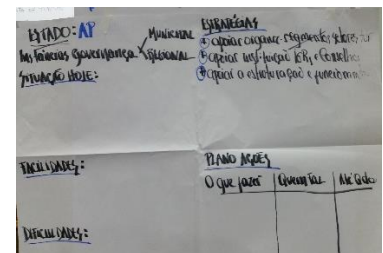 ESTADO: AP
Instâncias governança
MUNICIPAL
REGIONAL
SITUAÇÃO HOJE:
ESTRATÉGIAS
apoiar organiz. segmentos
apoiar instituição
apoiar a estruturação e
FACILIDADES:
DIFICULDADES:
PLANO AÇÕES
O que fazer
Quem faz
Até Qdo